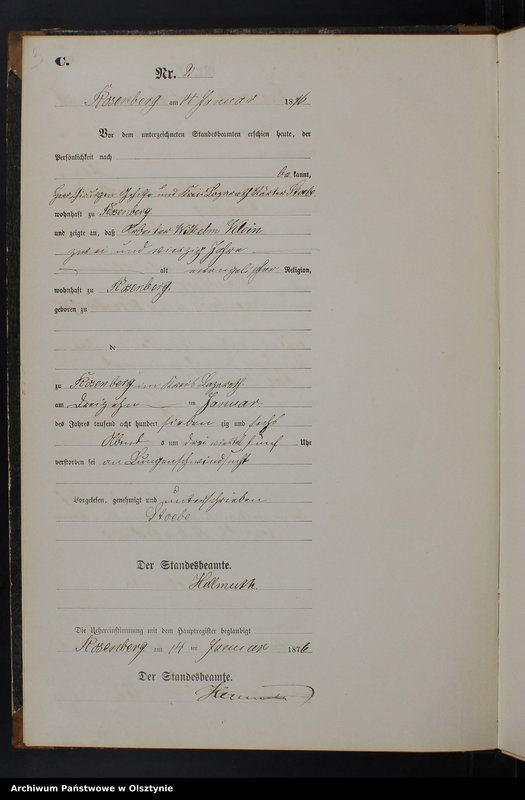 C.
Nr. 2
Rosenberg am 14 Januar 1876
Vor dem unterzeichneten Standesbeamten erschien heute, der
Persönlichkeit nach
be kannt,
und Kreis Lazareth Wärter
wohnhaft zu Rosenberg
und zeigte an, daß Arbeiter Wilhelm Klein
zwei und vierzig Jahre
alt evangelischer Religion,
wohnhaft zu Rosenberg.
geboren zu
de
zu Rosenberg im Kreis Lazareth
am dreizehn ten Januar.
des Jahres tausend acht hundert sieben zig und sechs
Abend s um drei viertel fünf Uhr
verstorben sei an Lungenschwindsucht
Vorgelesen, genehmigt und unterschrieben
Stoebe
Der Standesbeamte.
Hellmuth.
Die Uebereinstimmung mit dem Hauptregister beglaubigt
Rosenberg am 14 ten Januar 1876
Der Standesbeamte.
Archiwum Państwowe w Olsztynie